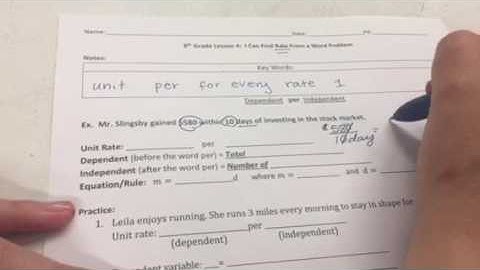 Name: Date: Pd:
8th Grade Lesson 4: I Can Find Rate From a Word Problem
Notes:
Key Words:
unit per for every rate 1
Dependent per Independent
Ex. Mr. Slingsby gained $580 within 10 days of investing in the stock market.
Unit Rate: per
10 days =
Dependent (before the word per) = Total
Independent (after the word per) = Number of
Equation/Rule: m = d where m = and d =
Practice:
1. Leila enjoys running. She runs 3 miles every morning to stay in shape for
Unit rate: per
(dependent) (independent)
variable: =